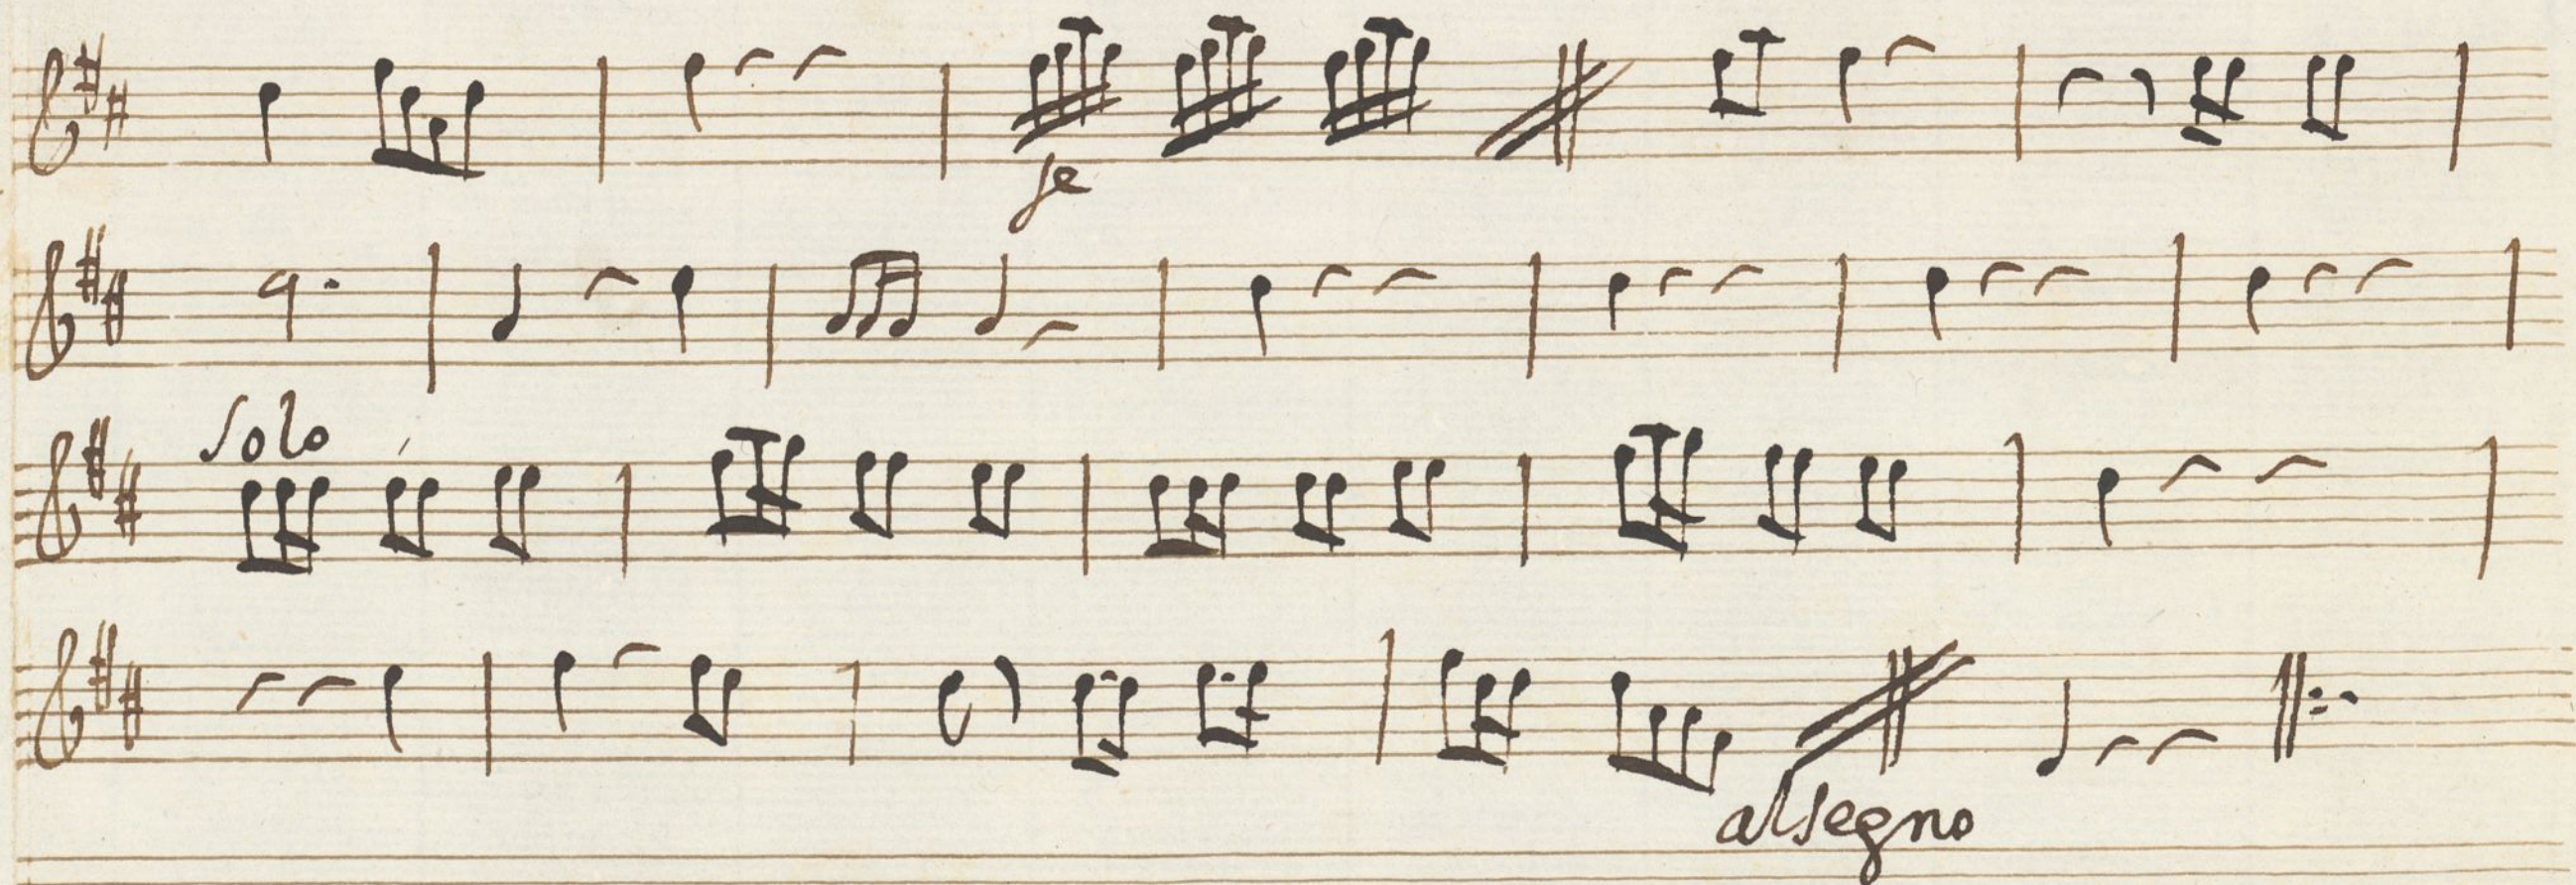 se
solo
alsegno